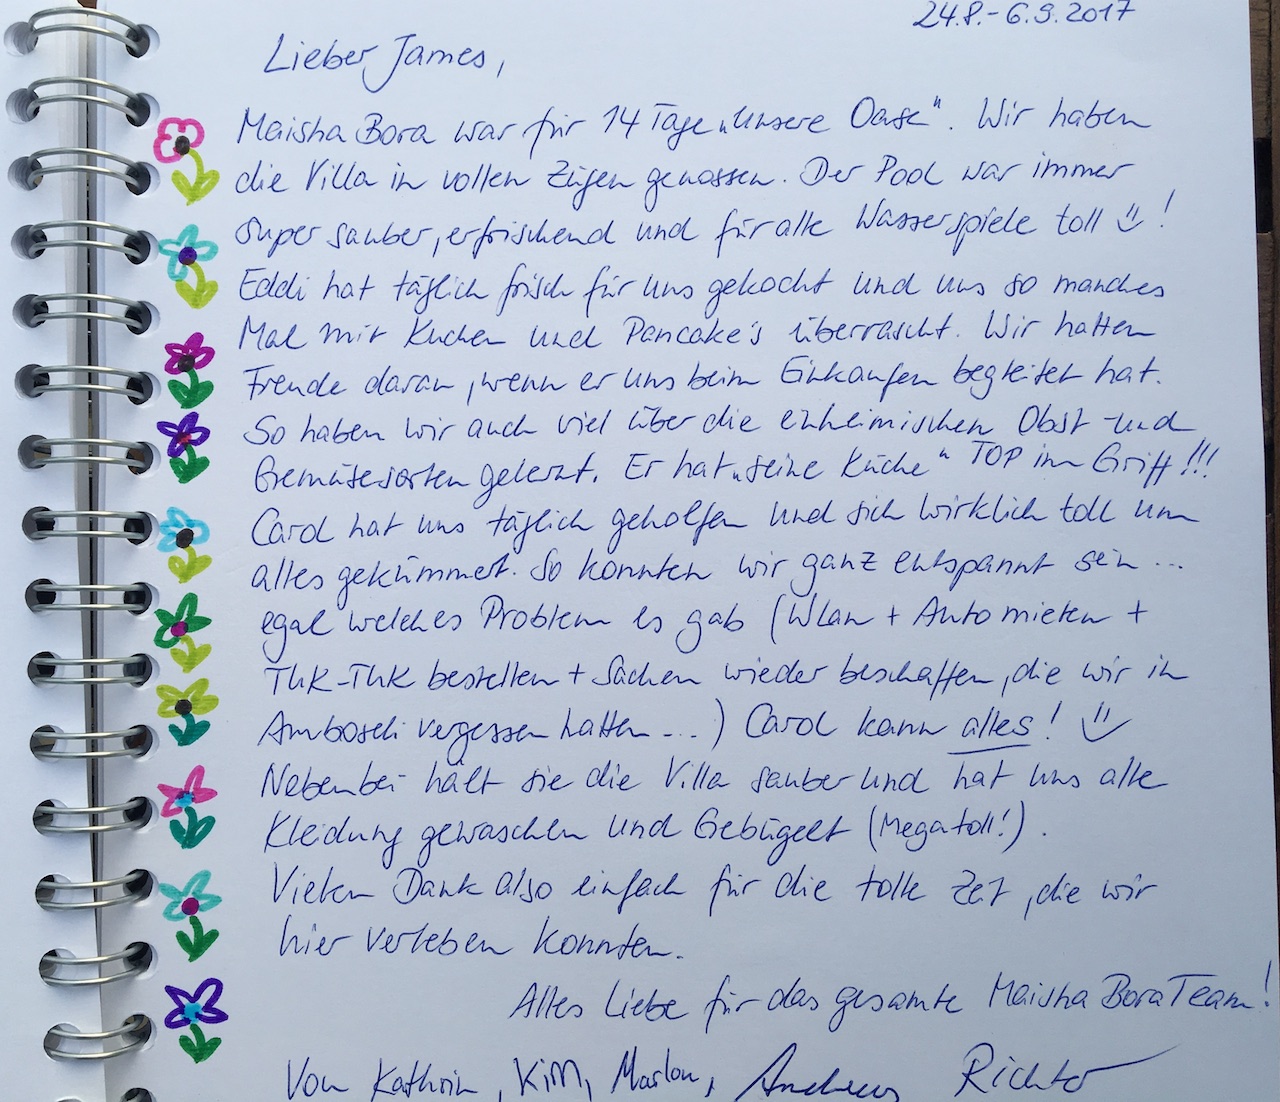 24.8.-6.9.2017
Lieber James,
Maisha Bora war für 14 Tage „unsere Oase“. Wir haben
die Villa in vollen Zügen genossen. Der Pool war immer
super sauber, erfrischend und für alle Wasserspiele toll !
Eddi hat täglich frisch für uns gekocht und uns so manches
Mal mit Kuchen und Pancake's überrascht. Wir hatten
Freude daran, wenn er uns beim Einkaufen begleitet hat.
So haben wir auch viel über die einheimischen Obst- und
Gemüsesorten gelernt. Er hat „seine Küche“ TOP im Griff!!!
Carol hat uns täglich geholfen und sich wirklich toll um
alles gekümmert. So konnten wir ganz entspannt sein ...
egal welches Problem es gab (Wlan + Auto mieten +
Tuk-Tuk bestellen + Sachen wieder beschaffen, die wir in
Amboseli vergessen hatten ...) Carol kann alles!
Nebenbei hält sie die Villa sauber und hat uns alle
Kleidung gewaschen und Gebügelt (Megatoll!).
Vielen Dank also einfach für die tolle Zeit, die wir
hier verleben konnten.
Alles Liebe für das gesamte Maisha Bora Team!
Von Kathrin, Kim, Marlon, Andreas Richter